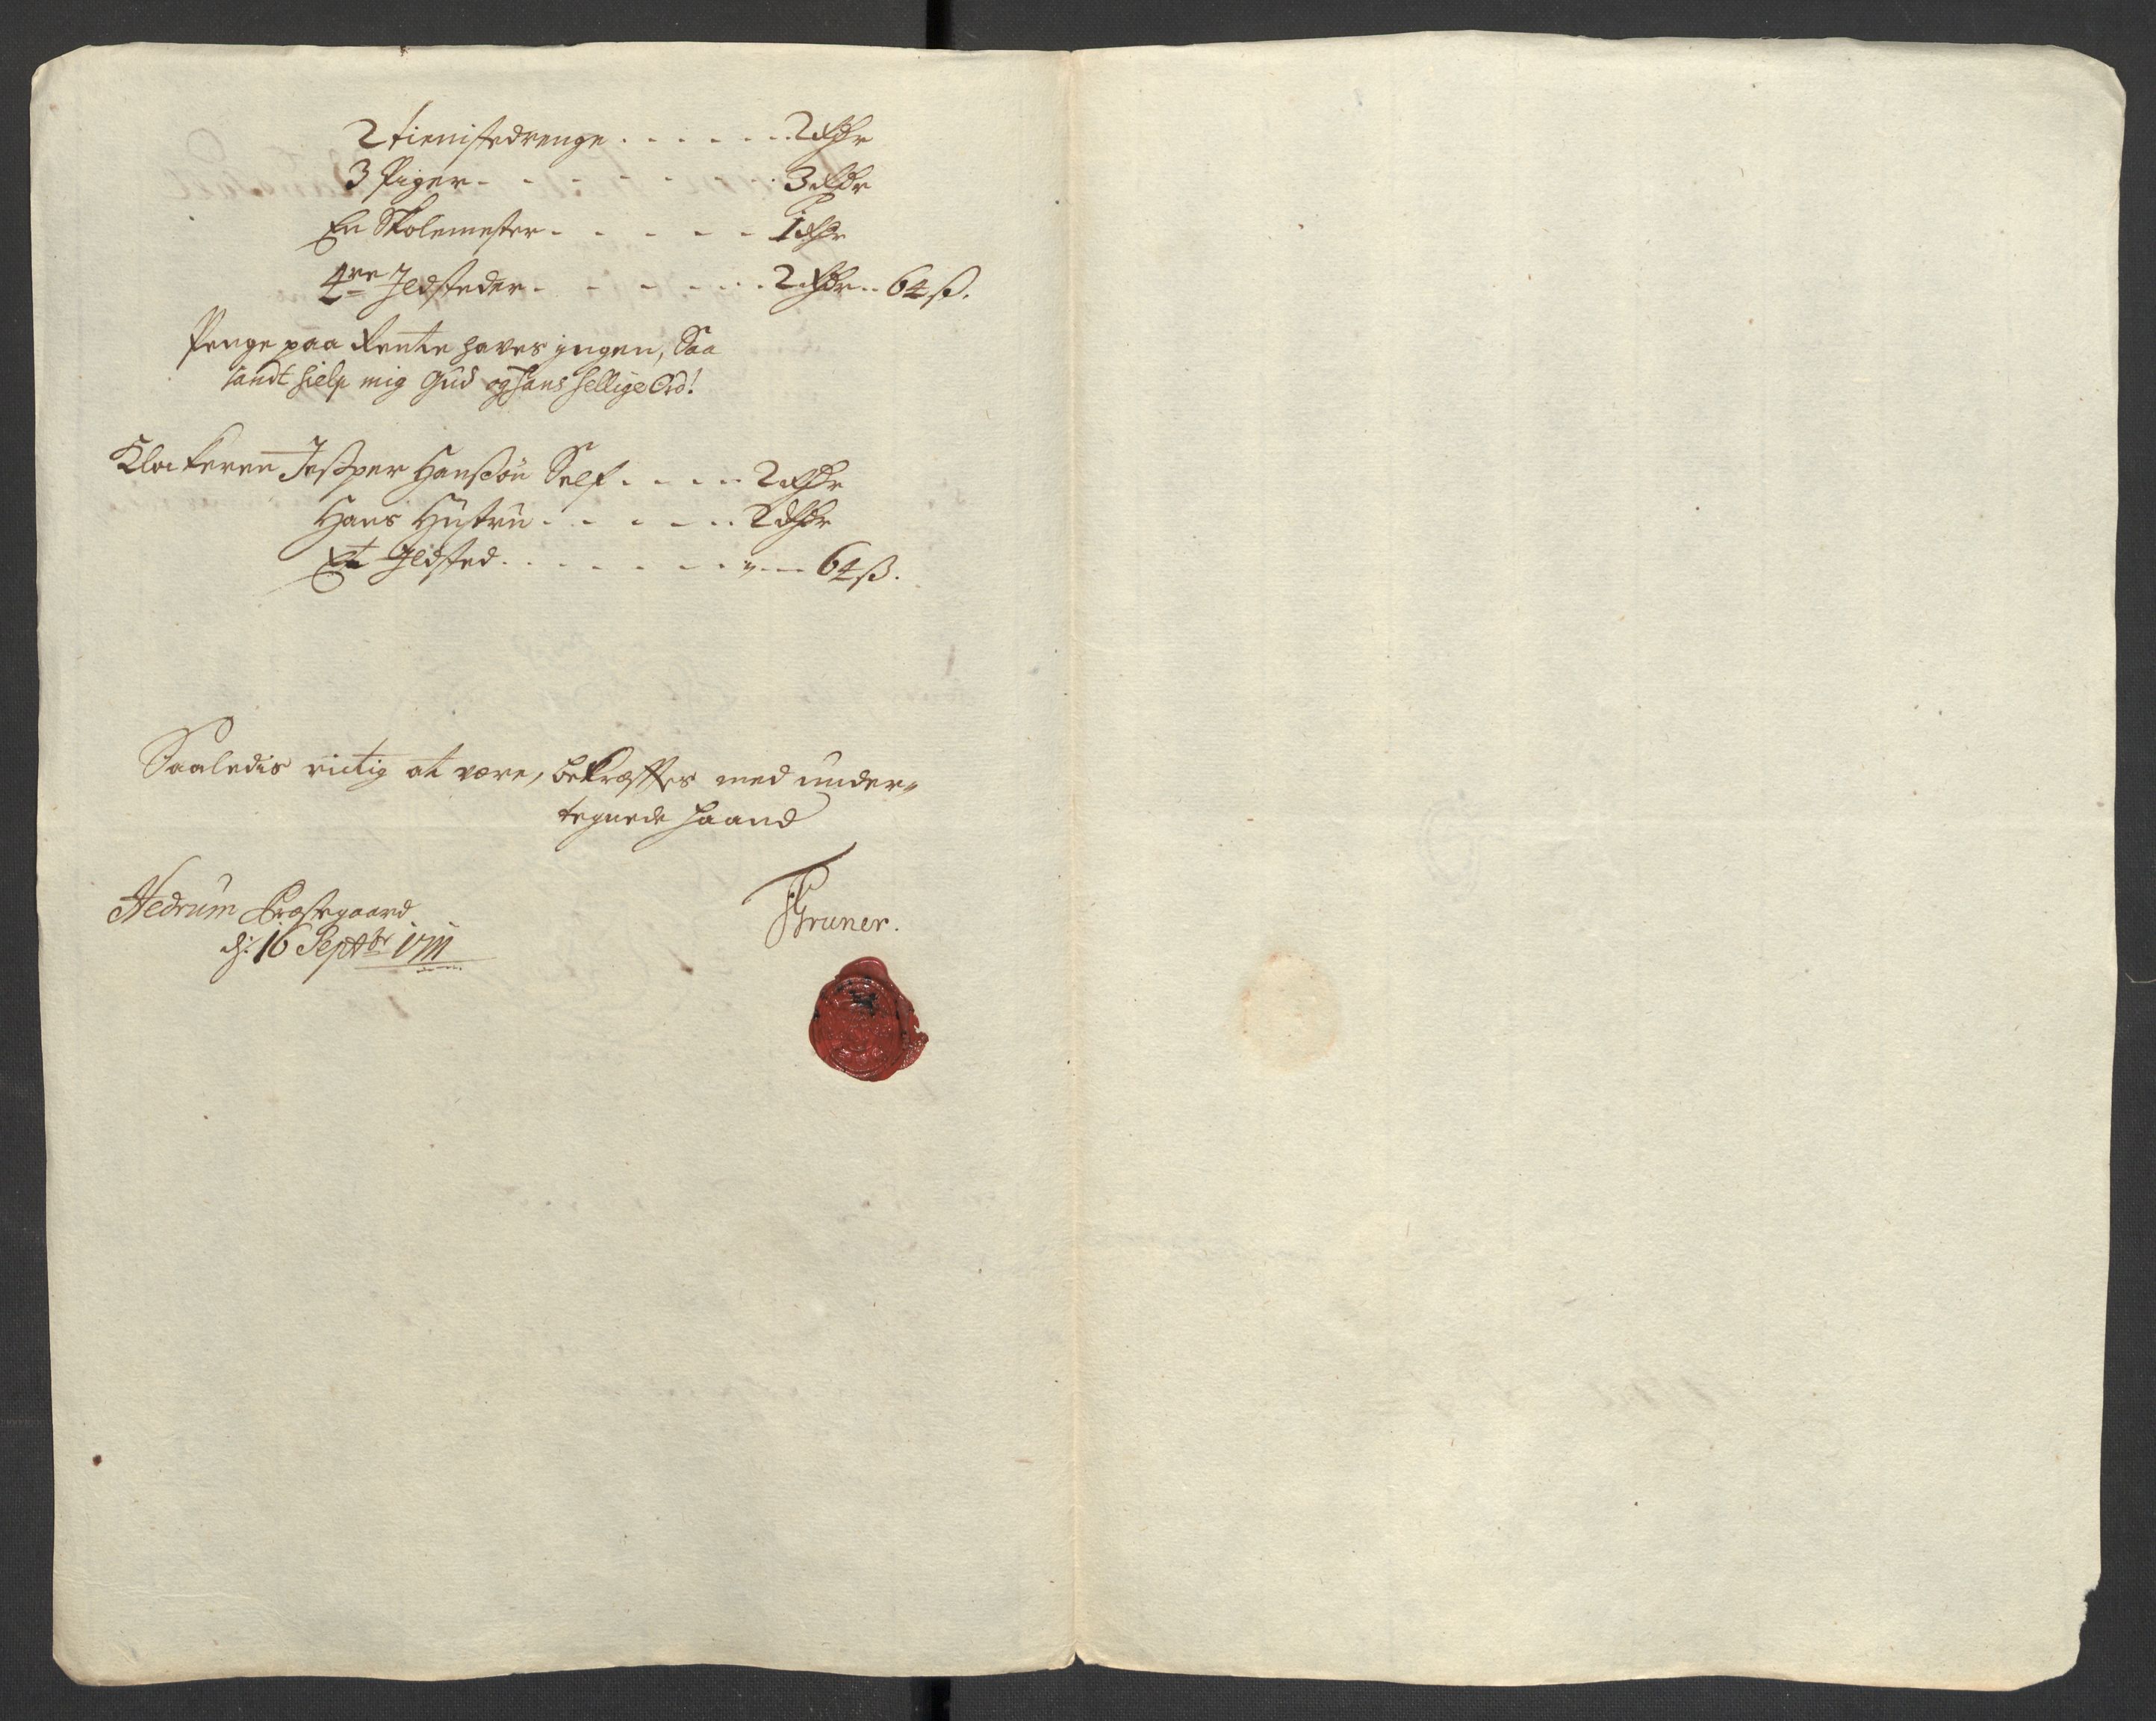 2 tienistedrenge . . . . . . 2 Rdr
3 Piger - - - - - - - 3 Rdr
En Skolemester - - - - - 1 Rdr
4re Jldsteder - - - - - - 2 Rdr .. 64 ß.
Penge paa Rente haves ingen, Saa
sandt hielp mig Gud og hans hellige Ord!
Klockeren Jesper Hanssøn Self . - - - 2 Rdr
Hans Hustru - - - - - 2 Rdr
Et Jldsted . - - - - - - „ --- 64 ß.
Saaledis rictig at være, bekræfftes med under„
tegnede haand
Hedrum Præstegaard
d: 16 Septbr 1711
Gruner.